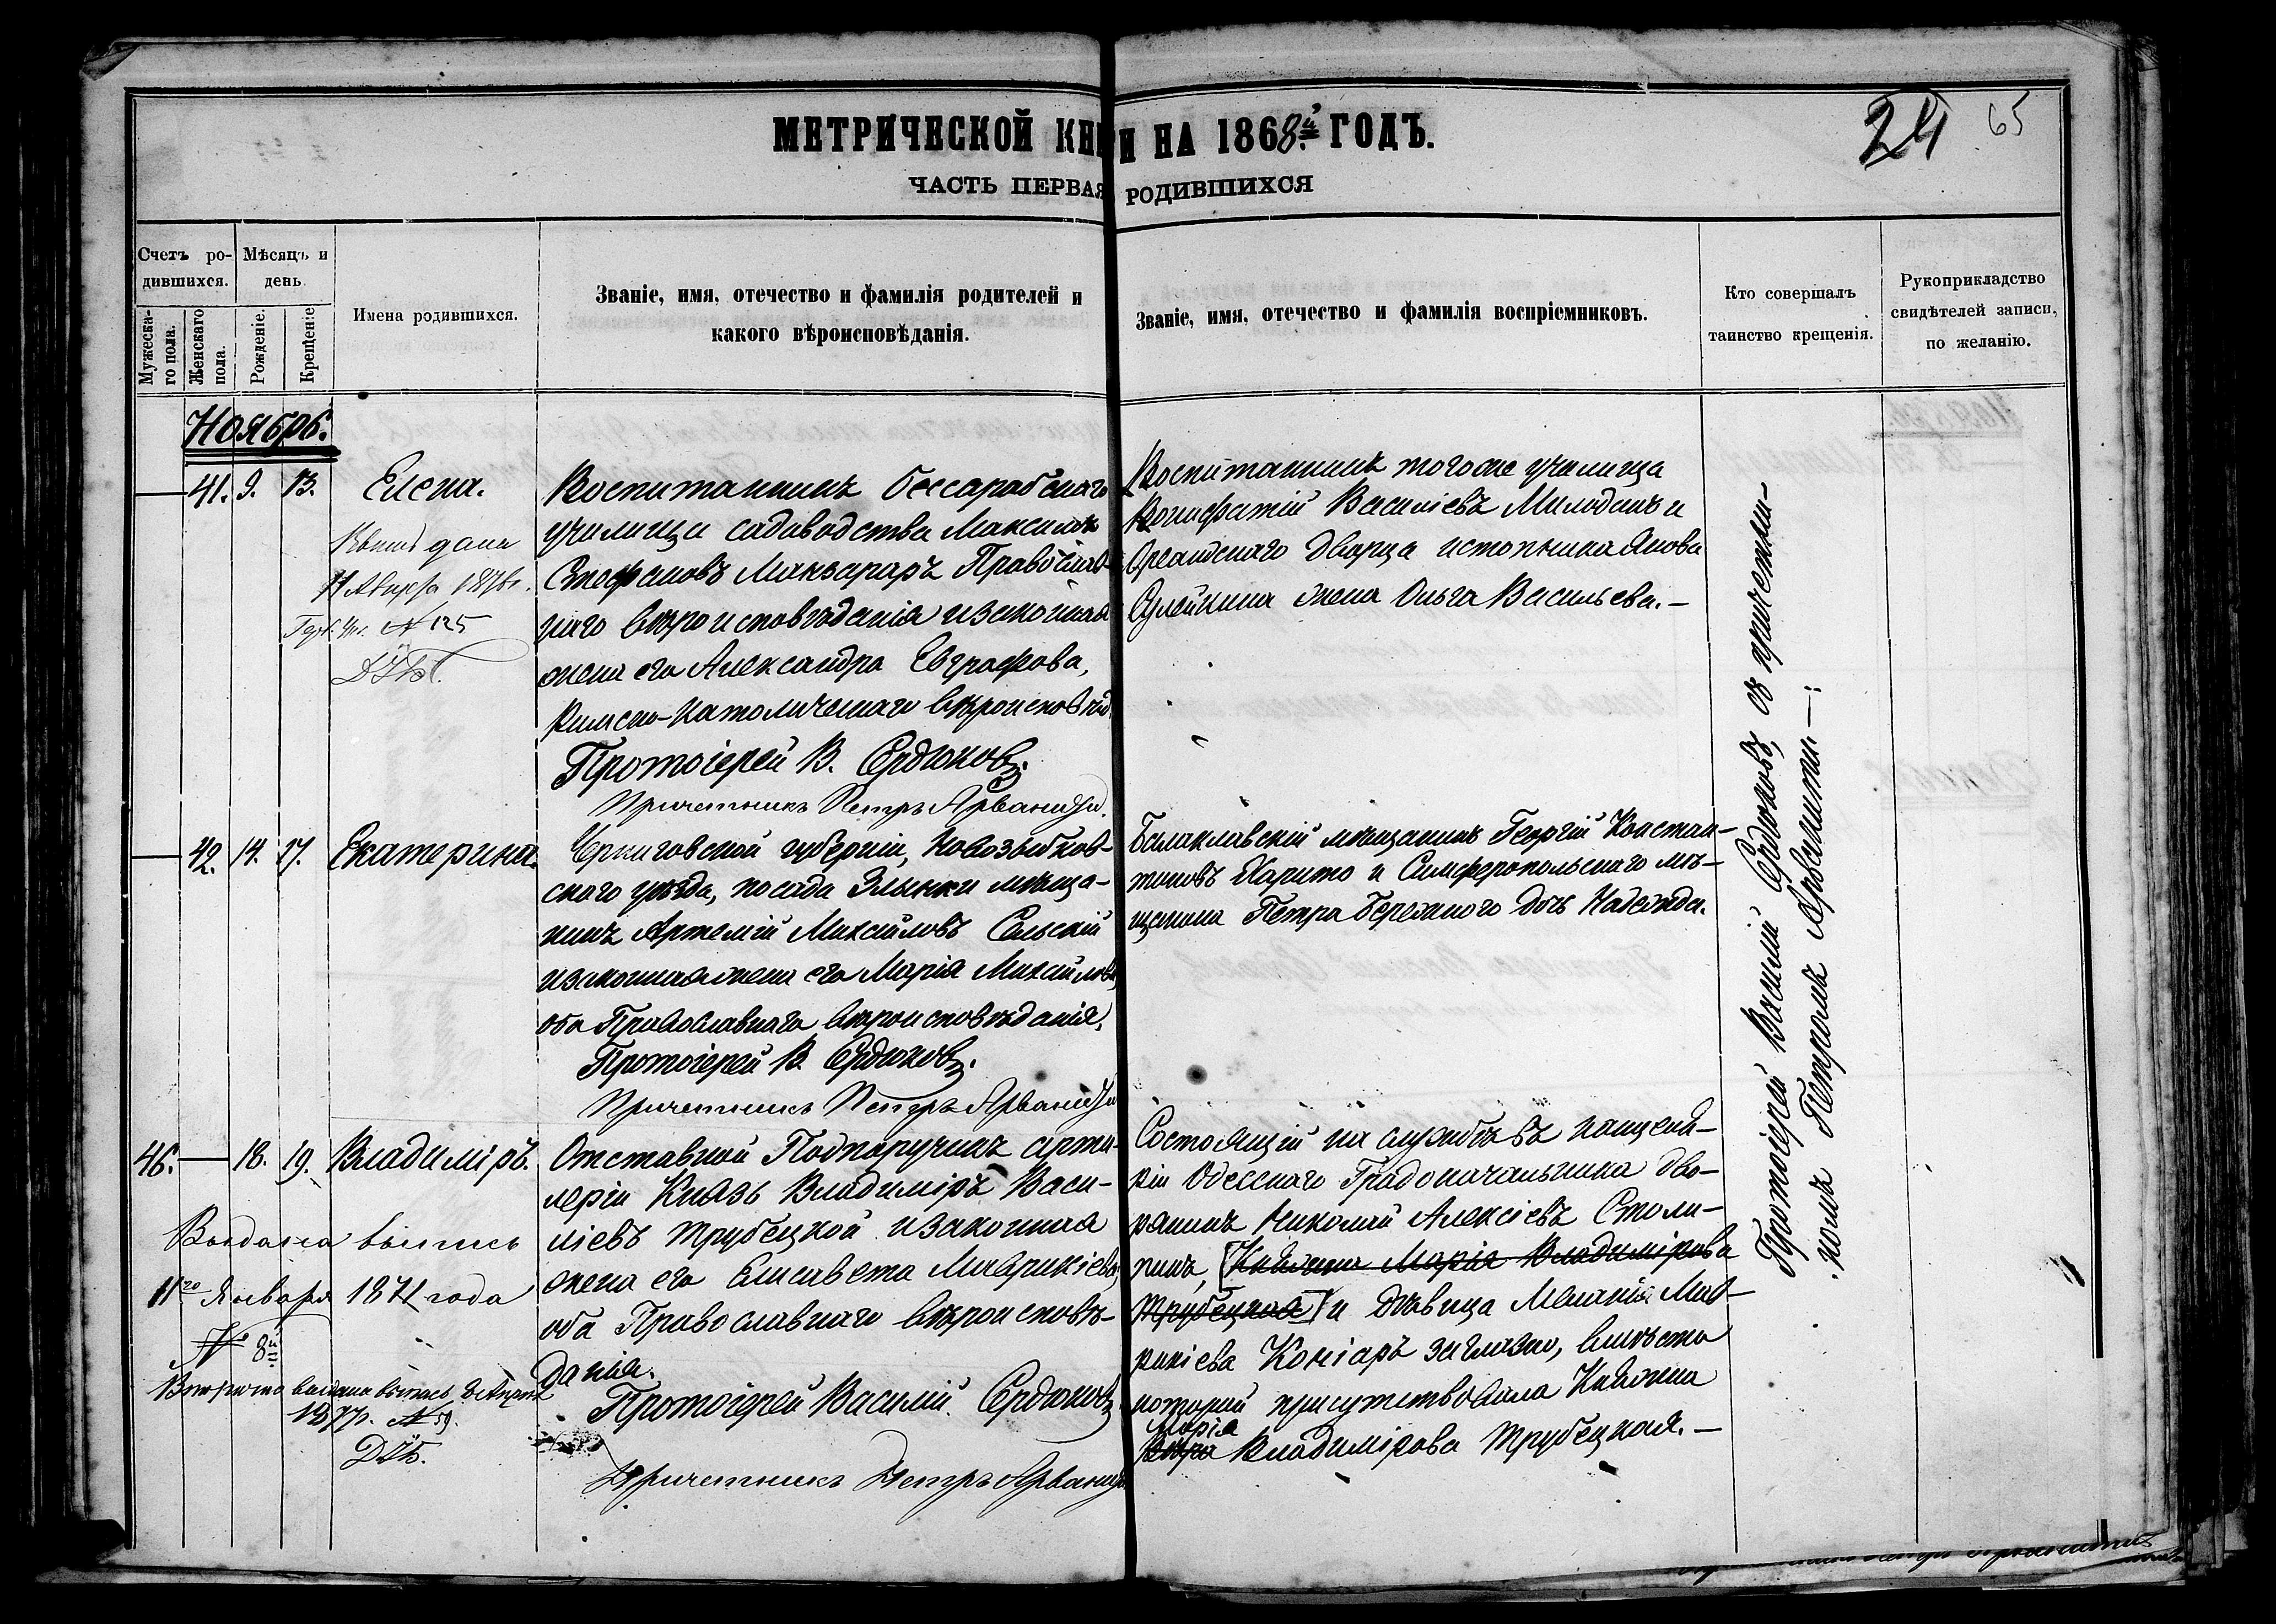 МЕТРИЧЕСКОЙ КНИГИ НА 1868й ГОДЪ.
24
65
ЧАСТЬ ПЕРВАЯ РОДИВШИХСЯ
Счетъ ро-
дившихся.
Мужеска-
го пола.
Женскаго
пола.
Мѣсяцъ и
день
Рожденіе.
Крещеніе
Имена родившихся.
Званіе, имя, отечество и фамилія родителей и
какого вѣроисповѣданія.
Званіе, имя, отечество и фамилія воспріемниковъ.
Кто совершалъ
таинство крещенія.
Рукоприкладство
свидѣтелей записи,
по желанію.
Ноябрь.
41. 9. 13. Елена.
дана
№ 125
Воспитанникъ бессарабскаго
училища садоводства Максимъ
Стефановъ Православ-
наго вѣроисповѣданія и законная
жена его Александра Евграфова,
Римско-Католическаго вѣроисповѣд.
Протоіерей В. Сердюковъ.
Причетникъ Петръ
Воспитанникъ тогоже училища
Вонифатій Василіевъ и
дворца истопника Якова
жена Ольга Васильева.—
42. 14. 17. Екатерина.
Черниговской губерніи, Новозыбков-
скаго уѣзда, посада Злынки мѣща-
нинъ Артемій Михайловъ Сельскій
и законная жена его Марія Михайлова,
оба Православнаго вѣроисповѣданія.
Протоіерей В. Сердюковъ.
Причетникъ Петръ
Балаклавскій мѣщанинъ Георгій Констан-
тиновъ Харито и Симферопольскаго мѣ-
щанина Петра дочь Надежда.
46. 18. 19. Владиміръ.
Выдана выпись
11го Января 1871 года
№ 8й
Вторично выдана выпись
1877г. № 59.
Отставной Подпоручикъ арти-
леріи Князь Владиміръ Васи-
ліевъ Трубецкой и законная
жена его Елисавета Маврикіева,
оба Православнаго вѣроисповѣ-
данія.
Протоіерей Василій Сердюковъ
Причетникъ Петръ
Состоящій на службѣ въ канцеля-
ріи Одесскаго Градоначальника дво-
рянинъ Николай Алексіевъ Столы-
пинъ, [Княжна Марія Владимірова
Трубецкая] и дѣвица Меланія Мав-
рикіева Коніаръ заглазно, вмѣсто
которой присутствовала Княжна
Марія
Вѣра Владимірова Трубецкая.—
Протоіерей Василій Сердюковъ, съ причетни-
комъ Петромъ